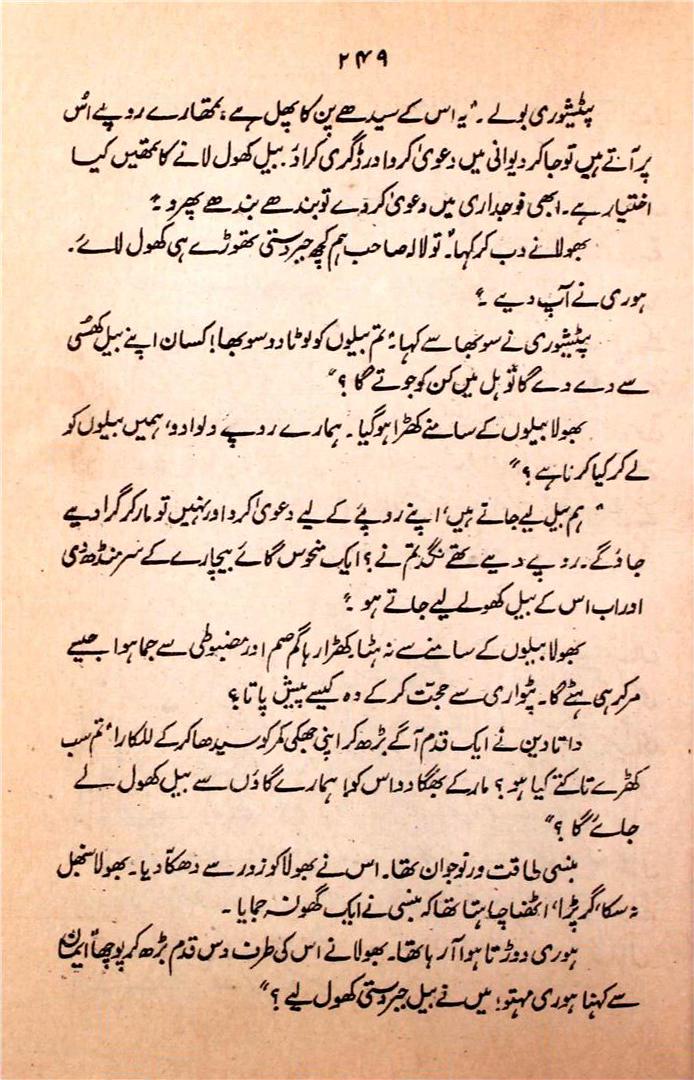 ۲۴۹
پٹیشوری بولے۔ "یہ اس کے سیدھے پن کا پھل ہے، تمھارے روپے اُس
پر آتے ہیں تو جا کر دیوانی میں دعویٰ کرو اور ڈگری کراؤ۔ بیل کھول لانے کا تمھیں کیا
اختیار ہے۔ ابھی فوجداری میں دعویٰ کر دے تو بندھے بندھے پھرو۔"
بھولا نے دب کر کہا۔ "تو لالہ صاحب ہم کچھ جبردستی تھوڑے ہی کھول لائے۔
ہوری نے آپ دیے۔"
پٹیشوری نے سوبھا سے کہا۔ "تم بیلوں کو لوٹا دو سوبھا! کسان اپنے بیل کھسی
سے دے دے گا تو ہل میں کن کو جوتے گا؟"
بھولا بیلوں کے سامنے کھڑا ہو گیا۔ ہمارے روپے دلوا دو، ہمیں بیلوں کو
لے کر کیا کرنا ہے؟"
"ہم بیل لیے جاتے ہیں، اپنے روپئے کے لیے دعویٰ کرو اور نہیں تو مار کر گرا دیے
جاؤ گے۔ روپے دیے تھے نگد تم نے؟ ایک منحوس گائے بیچارے کے سر منڈھ دی
اور اب اس کے بیل کھولے لیے جاتے ہو۔"
بھولا بیلوں کے سامنے سے نہ ہٹا۔ کھڑا رہا گم صم اور مضبوطی سے جما ہوا جیسے
مر کر ہی ہٹے گا۔ پٹواری سے حجت کر کے وہ کیسے پیش پاتا؟
داتا دین نے ایک قدم آگے بڑھ کر اپنی جھکی کمر کو سیدھا کر کے للکارا "تم سب
کھڑے تاکتے کیا ہو؟ مار کے بھگا دو اس کو! ہمارے گاؤں سے بیل کھول لے
جائے گا؟"
بنسی طاقت ور نوجوان تھا۔ اس نے بھولا کو زور سے دھکا دیا۔ بھولا سنبھل
نہ سکا، گر پڑا، اٹھنا چاہتا تھا کہ بنسی نے ایک گھونسہ جمایا۔
ہوری دوڑتا ہوا آ رہا تھا۔ بھولا نے اس کی طرف دس قدم بڑھ کر پوچھا "ایمان
سے کہنا ہوری مہتو؛ میں نے بیل جبردستی کھول لیے؟"